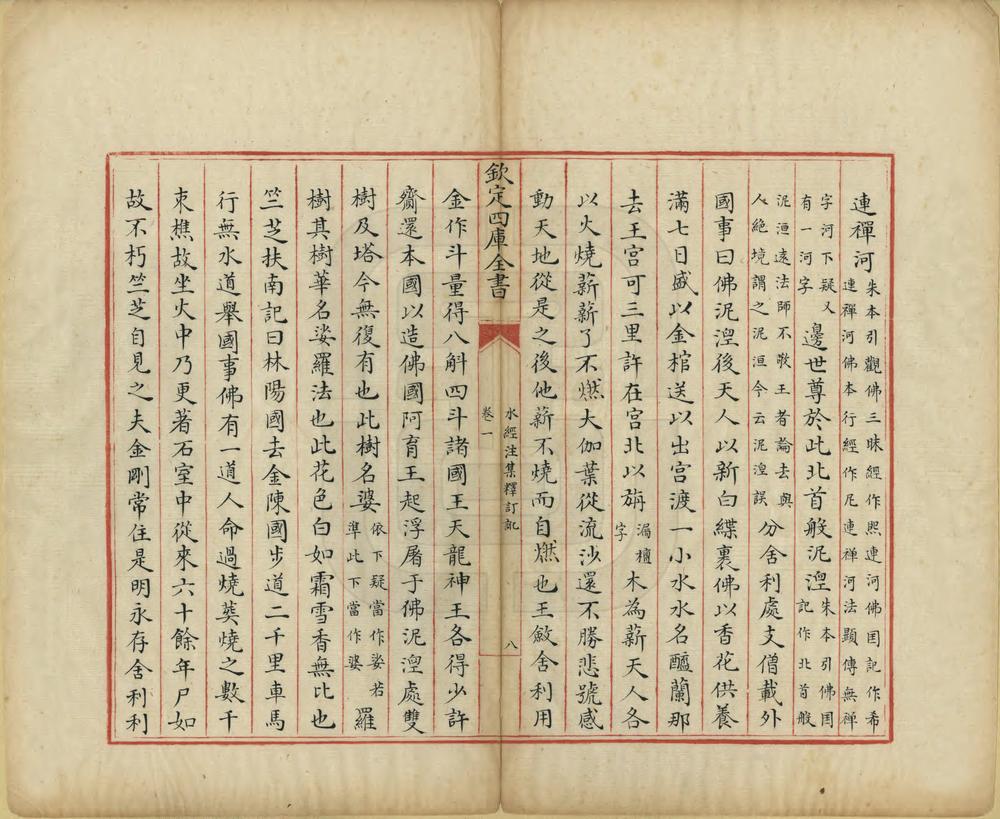 連禪河朱本引觀佛三昧經作熙連河佛国記作希連禪河佛本行經作尼連禪河法顯傳無禪
字河下疑又有一河字邊世尊於此北首般泥湟朱本引佛国記作北首般
泥洹遠法師不敬王者論去與人絶境謂之泥洹今云泥湟誤分舍利處支僧載外
國事曰佛泥湟後天人以新白緤裏佛以香花供養
滿七日盛以金棺送以出宮渡一小水水名醯蘭那
去王宮可三里許在宮北以旃漏檀字木為薪天人各
以火燒薪薪了不燃大伽葉從流沙還不勝悲號感
動天地從是之後他薪不燒而自燃也王斂舍利用
欽定四庫全書
水經注集釋訂訛
卷一
八
金作斗量得八斛四斗諸國王天龍神王各得少許
齎還本國以造佛國阿育王起浮屠于佛泥湟處雙
樹及塔今無復有也此樹名婆依下疑當作娑若準此下當作婆羅
樹其樹華名娑羅法也此花色白如霜雪香無比也
竺芝扶南記曰林陽國去金陳國步道二千里車馬
行無水道舉國事佛有一道人命過燒葬燒之數千
束樵故坐火中乃更著石室中從來六十餘年尸如
故不朽竺芝自見之夫金剛常住是明永存舍利利